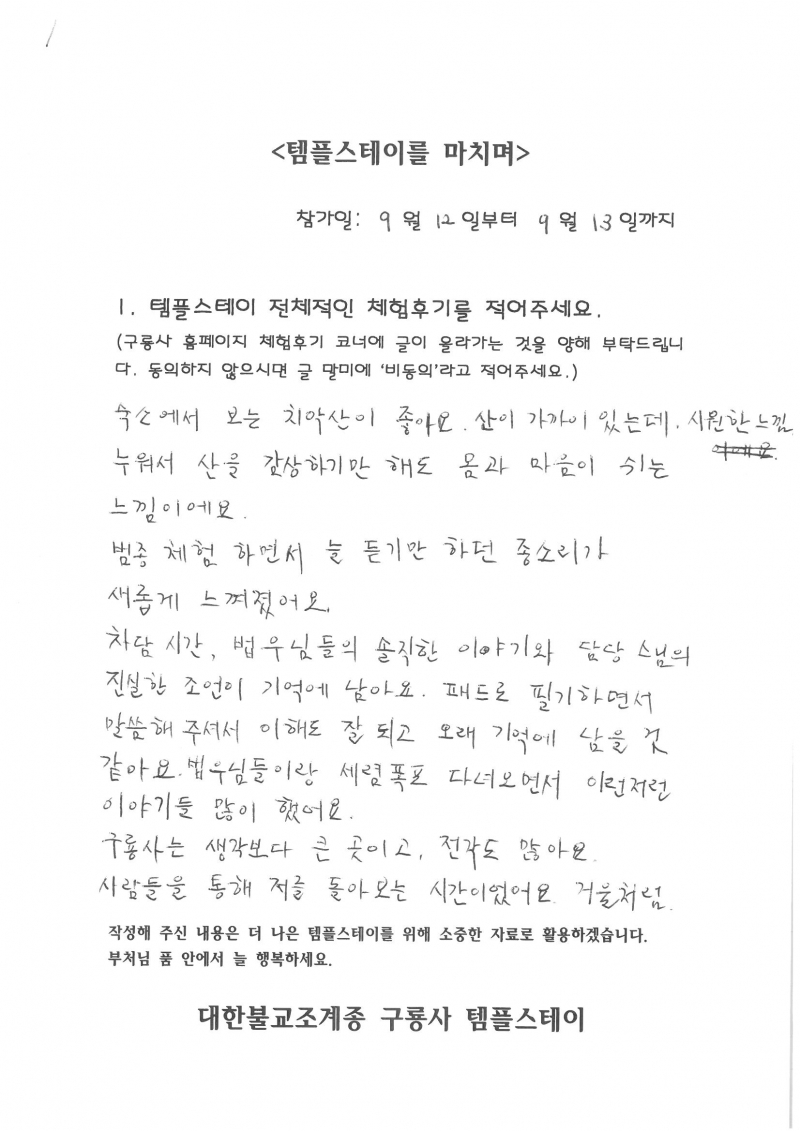 <템플스테이를 마치며>
참가일: 9 월 12 일부터 9 월 13 일까지
1. 템플스테이 전체적인 체험후기를 적어주세요.
(구룡사 홈페이지 체험후기 코너에 글이 올라가는 것을 양해 부탁드립니
다. 동의하지 않으시면 글 말미에 ‘비동의’라고 적어주세요.)
숙소에서 보는 치악산이 좋아요. 산이 가까이 있는데, 시원한 느낌
이에요.
누워서 산을 감상하기만 해도 몸과 마음이 쉬는
느낌이에요.
범종 체험 하면서 늘 듣기만 하던 종소리가
새롭게 느껴졌어요.
차담 시간, 법우님들의 솔직한 이야기와 담당 스님의
진실한 조언이 기억에 남아요. 패드로 필기하면서
말씀해 주셔서 이해도 잘 되고 오래 기억에 남을 것
같아요. 법우님들이랑 세렴폭포 다녀오면서 이런저런
이야기들 많이 했어요.
구룡사는 생각보다 큰 곳이고, 전각도 많아요.
사람들을 통해 저를 돌아보는 시간이었어요. 거울처럼.
작성해 주신 내용은 더 나은 템플스테이를 위해 소중한 자료로 활용하겠습니다.
부처님 품 안에서 늘 행복하세요.
대한불교조계종 구룡사 템플스테이